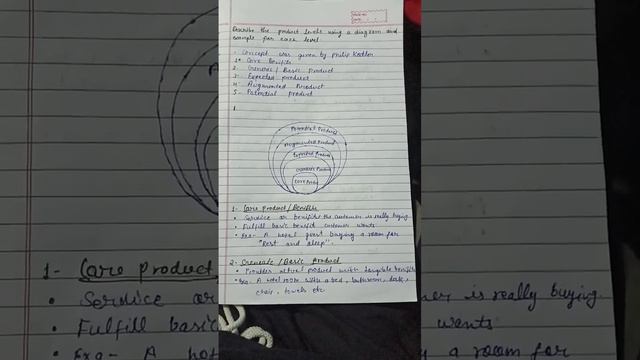 Describe the product levels using a diagram and
example for each level
- Concept was given by Philip Kotler
1- Core Benifits
2- Generic / Basic Product
3- Expected product
4- Augmented Product
5- Potential product
1.
Potential Product
Augmented Product
Expected Product
Product
Core
1- Core Product / Benefits
• Service or benifits the customer is really buying
• Fulfill basic benefit customer wants
• Exa- A hotel guest buying a room for
"Rest and sleep".
2- Generic / Basic Product
• actual product with tangible benefits
• Exa. A hotel room with a bed, bathroom, desk,
chair, towels etc
1- Core product
• Service or
• Fulfill basic
• Exa- A
is really buying
wants
a room for